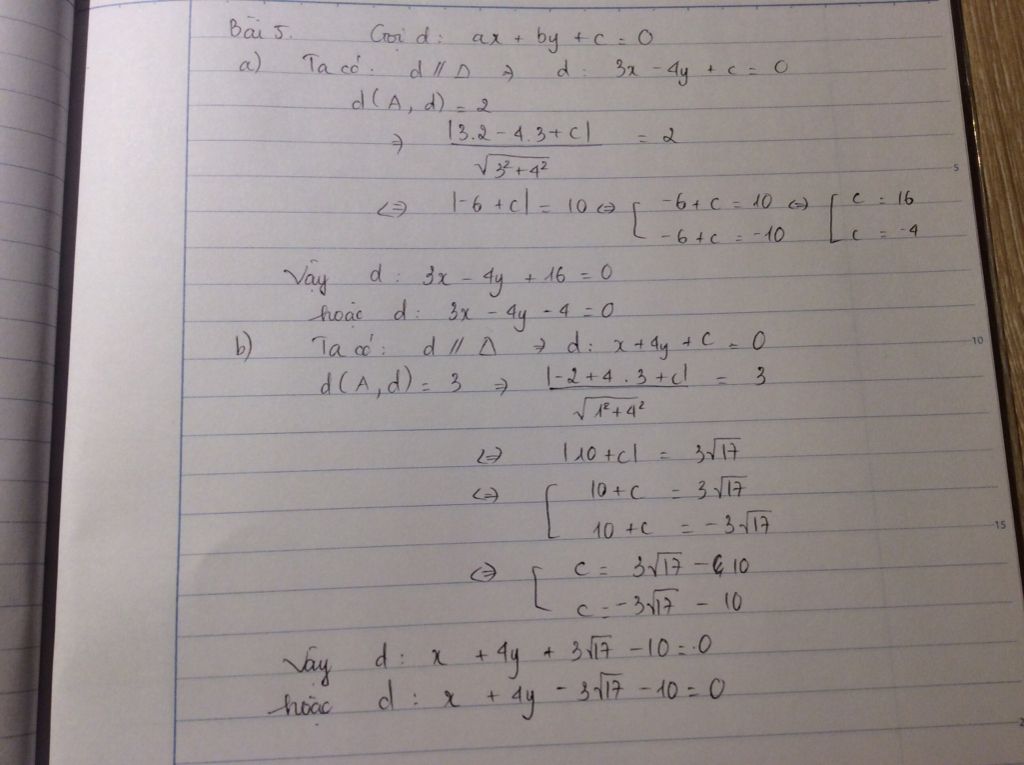 Bài 5. Gọi d: ax + by + c = 0
a) Ta có: d // Δ ⇒ d: 3x - 4y + c = 0
d(A, d) = 2
⇒ |3.2 - 4.3 + c| / √(3² + 4²) = 2
⇔ |-6 + c| = 10 ⇔ [ -6 + c = 10 ⇔ [ c = 16
-6 + c = -10 c = -4
Vậy d: 3x - 4y + 16 = 0
hoặc d: 3x - 4y - 4 = 0
b) Ta có: d // Δ ⇒ d: x + 4y + c = 0
d(A, d) = 3 ⇒ |-2 + 4.3 + c| / √(1² + 4²) = 3
⇔ |10 + c| = 3√17
⇔ [ 10 + c = 3√17
10 + c = -3√17
⇔ [ c = 3√17 - 10
c = -3√17 - 10
Vậy d: x + 4y + 3√17 - 10 = 0
hoặc d: x + 4y - 3√17 - 10 = 0
5
10
15
2